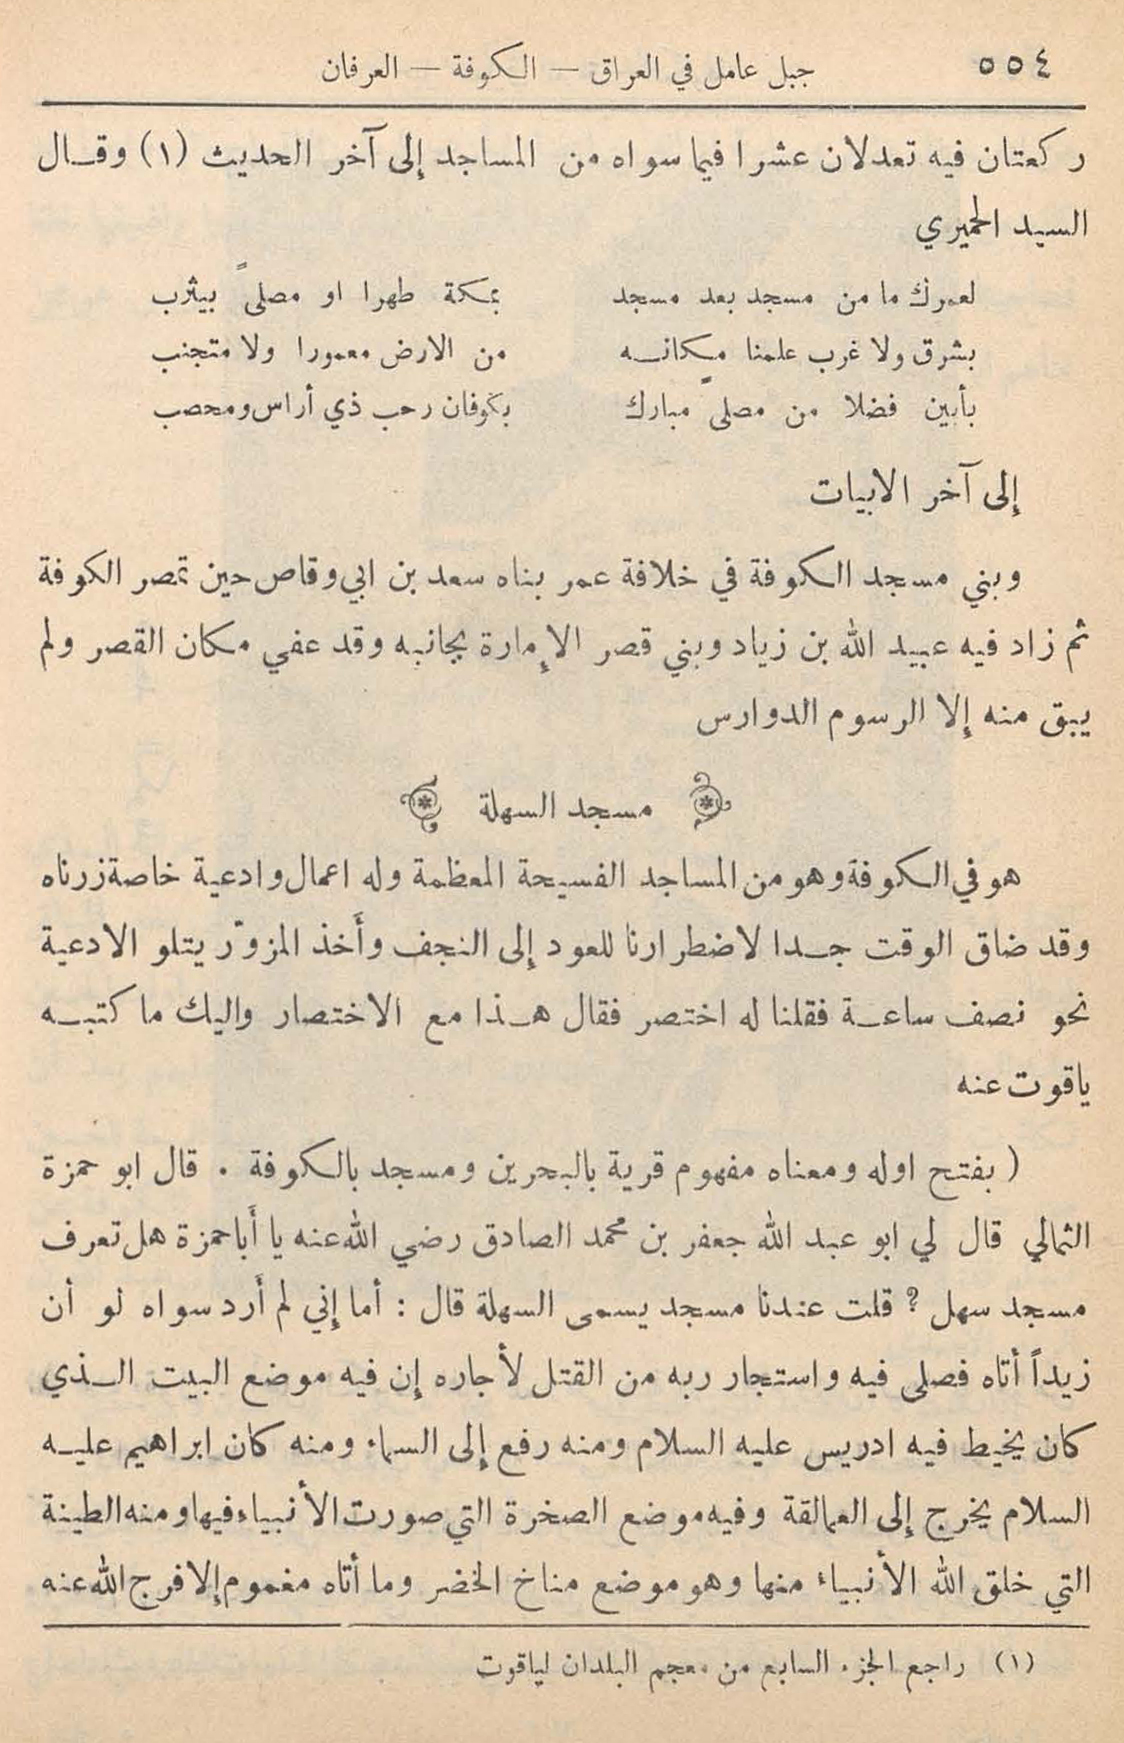 ٥٥٤ جبل عامل في العراق — الكوفة — العرفان
ركعتان فيه تعدلان عشرا فيما سواه من المساجد إلى آخر الحديث (١) وقال
السيد الحميري
لعمرك ما من مسجد بعد مسجد بمكة طهرا او مصلىً بيثرب
بشرق ولا غرب علمنا مكانه من الارض معمورا ولا متجنب
بأبين فضلا من مصلىً مبارك بكوفان رحب ذي أراس ومحصب
إلى آخر الابيات
وبني مسجد الكوفة في خلافة عمر بناه سعد بن ابي وقاص حين تمصر الكوفة
ثم زاد فيه عبيد الله بن زياد وبني قصر الإمارة بجانبه وقد عفي مكان القصر ولم
يبق منه إلا الرسوم الدوارس
مسجد السهلة
هو في الكوفة وهو من المساجد الفسيحة المعظمة وله اعمال وادعية خاصة زرناه
وقد ضاق الوقت جدا لاضطرارنا للعود إلى النجف وأخذ المزوّر يتلو الادعية
نحو نصف ساعة فقلنا له اختصر فقال هذا مع الاختصار واليك ما كتبه
ياقوت عنه
( بفتح اوله ومعناه مفهوم قرية بالبحرين ومسجد بالكوفة . قال ابو حمزة
الثمالي قال لي ابو عبد الله جعفر بن محمد الصادق رضي الله عنه يا أبا حمزة هل تعرف
مسجد سهل ? قلت عندنا مسجد يسمى السهلة قال : أما إني لم أرد سواه لو أن
زيداً أتاه فصلى فيه واستجار ربه من القتل لأجاره إن فيه موضع البيت الذي
كان يخيط فيه ادريس عليه السلام ومنه رفع إلى السماء ومنه كان ابراهيم عليه
السلام يخرج إلى العمالقة وفيه موضع الصخرة التي صورت الأنبياء فيها ومنه الطينة
التي خلق الله الأنبياء منها وهو موضع مناخ الخضر وما أتاه مغموم إلا فرج الله عنه
(١) راجع الجزء السابع من معجم البلدان لياقوت